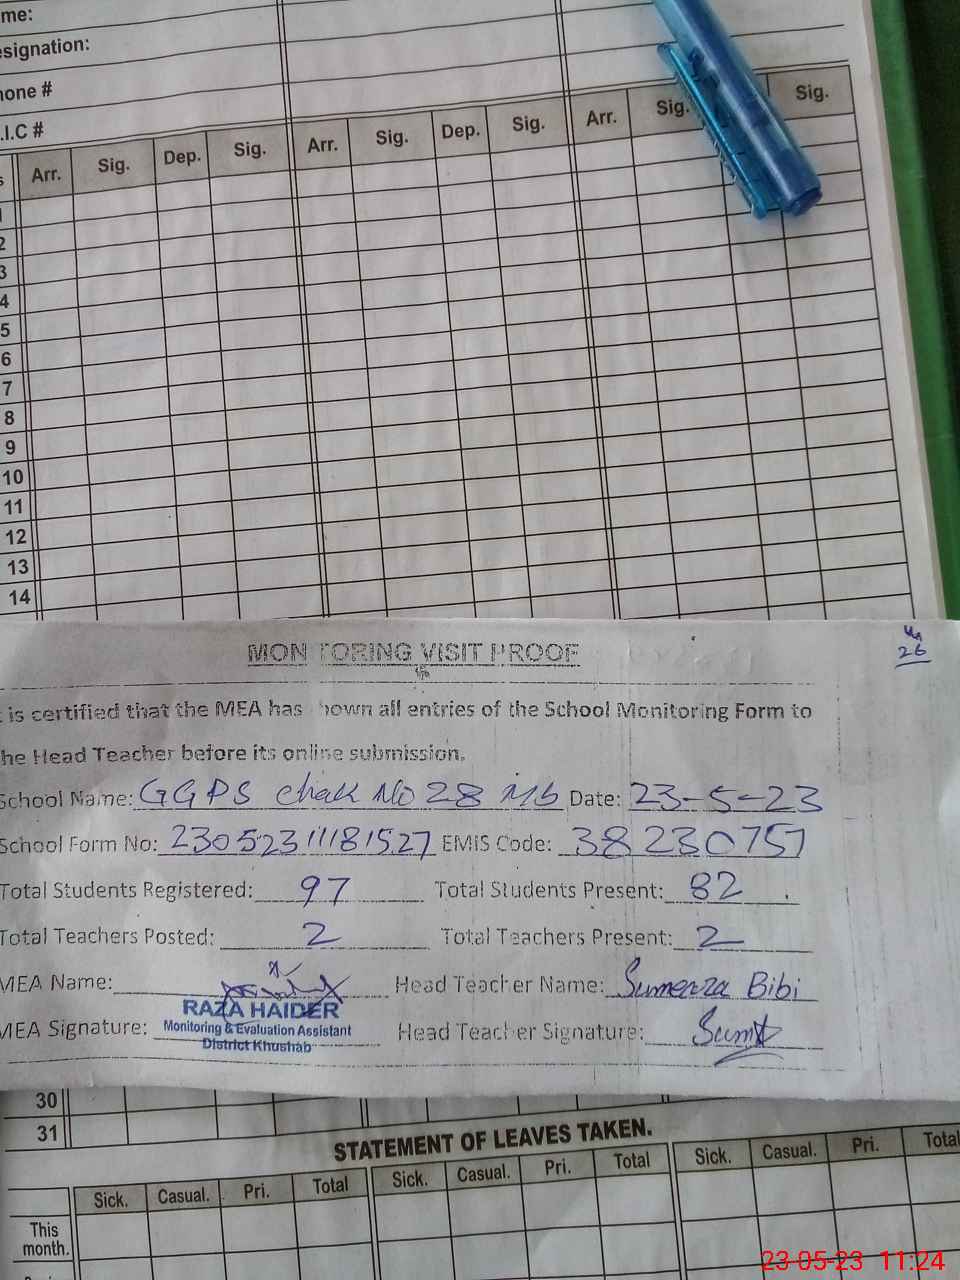 me:
esignation:
hone #
.I.C #
s Arr. Sig. Dep. Sig. Arr. Sig. Dep. Sig. Arr. Sig. Sig.
1
2
3
4
5
6
7
8
9
10
11
12
13
14
26
MONITORING VISIT PROOF
t is certified that the MEA has shown all entries of the School Monitoring Form to
he Head Teacher before its online submission.
School Name: GGPS Chak No 28 Mb Date: 23-5-23
School Form No: 230523111181527 EMIS Code: 38230757
Total Students Registered: 97 Total Students Present: 82
Total Teachers Posted: 2 Total Teachers Present: 2
MEA Name: Head Teacher Name: Sumenza Bibi
RAZA HAIDER
MEA Signature: Monitoring & Evaluation Assistant Head Teacher Signature:
District Khushab
30
31
STATEMENT OF LEAVES TAKEN.
Sick. Casual. Pri. Total Sick. Casual. Pri. Total Sick. Casual. Pri. Total
This
month.
23-05-23 11:24